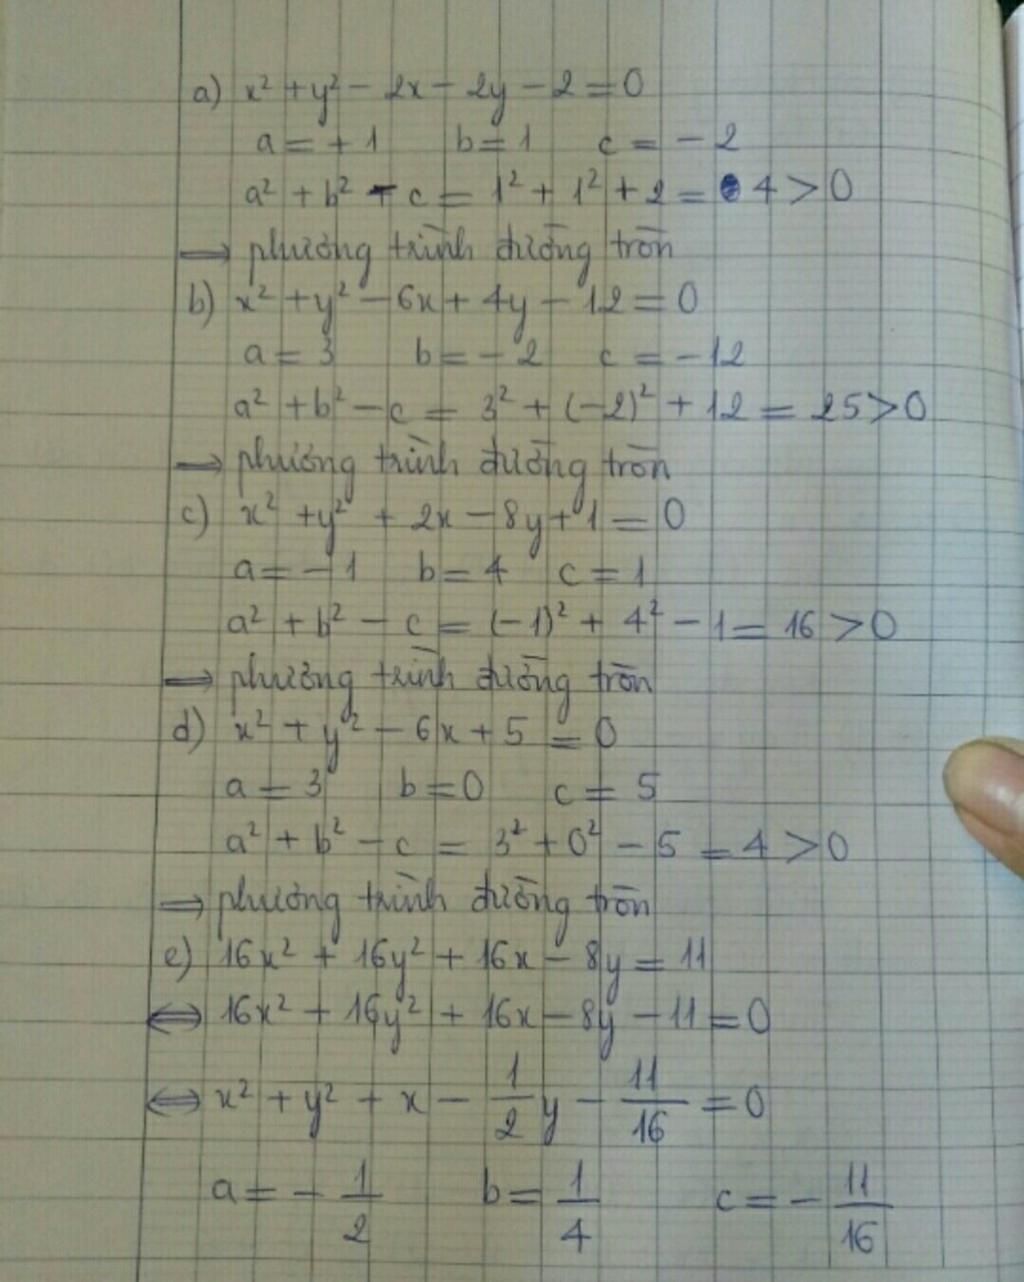 a) x² + y² - 2x - 2y - 2 = 0
a = + 1 b = 1 c = - 2
a² + b² - c = 1² + 1² + 2 = 4 > 0
⟹ phương trình đường tròn
b) x² + y² - 6x + 4y - 12 = 0
a = 3 b = - 2 c = -12
a² + b² - c = 3² + (-2)² + 12 = 25 > 0
⟹ phương trình đường tròn
c) x² + y² + 2x - 8y + 1 = 0
a = - 1 b = 4 c = 1
a² + b² - c = (-1)² + 4² - 1 = 16 > 0
⟹ phương trình đường tròn
d) x² + y² - 6x + 5 = 0
a = 3 b = 0 c = 5
a² + b² - c = 3² + 0² - 5 = 4 > 0
⟹ phương trình đường tròn
e) 16x² + 16y² + 16x - 8y = 11
⟺ 16x² + 16y² + 16x - 8y - 11 = 0
⟺ x² + y² + x - 1/2 y - 11/16 = 0
a = - 1/2 b = 1/4 c = - 11/16